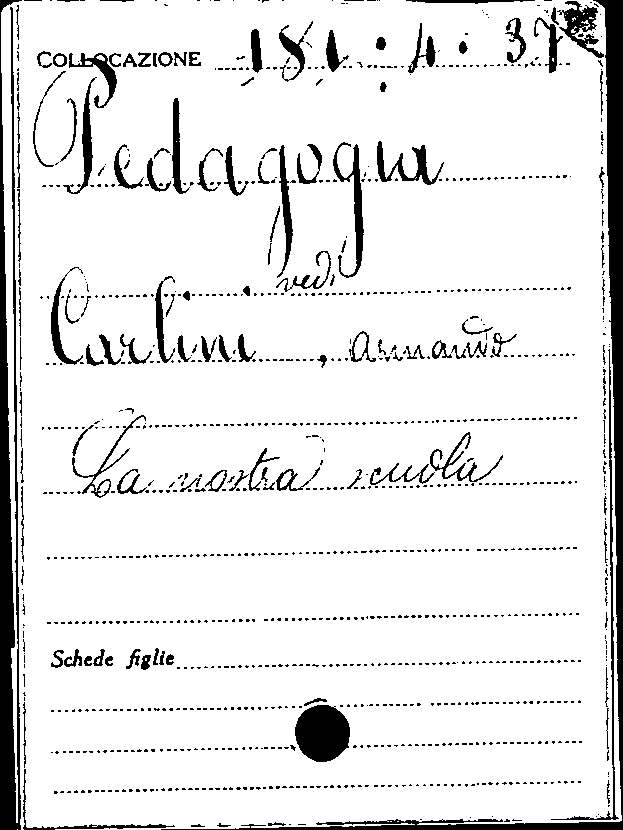 COLLOCAZIONE 181.4.37
Pedagogia
vedi
Carlini, Armando
La nostra scuola
Schede figlie